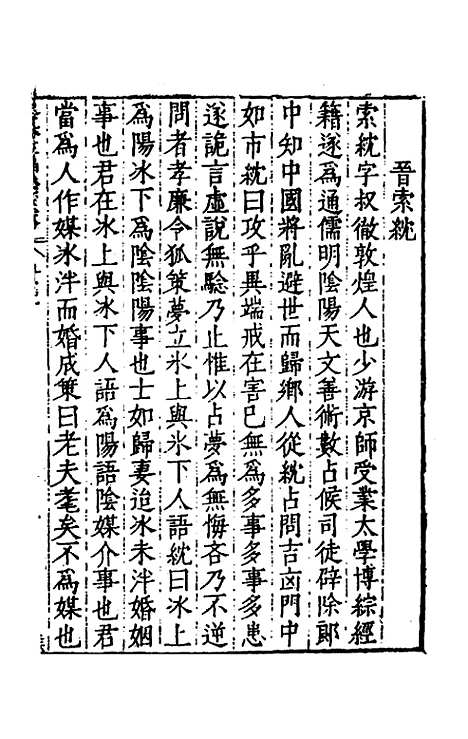 晉索紞
索紞字叔徹敦煌人也少游京師受業太學博綜經
籍遂爲通儒明陰陽天文善術數占候司徒辟除郞
中知中國將亂避世而歸鄉人從紞占問吉凶門中
如市紞曰攻乎異端戒在害已無爲多事多事多患
遂詭言虛說無驗乃止惟以占夢爲無悔吝乃不逆
問者孝廉令狐策夢立氷上與氷下人語紞曰氷上
爲陽氷下爲陰陰陽事也士如歸妻迨氷未泮婚姻
事也君在氷上與氷下人語爲陽語陰媒介事也君
當爲人作媒氷泮而婚成策曰老夫耄矣不爲媒也